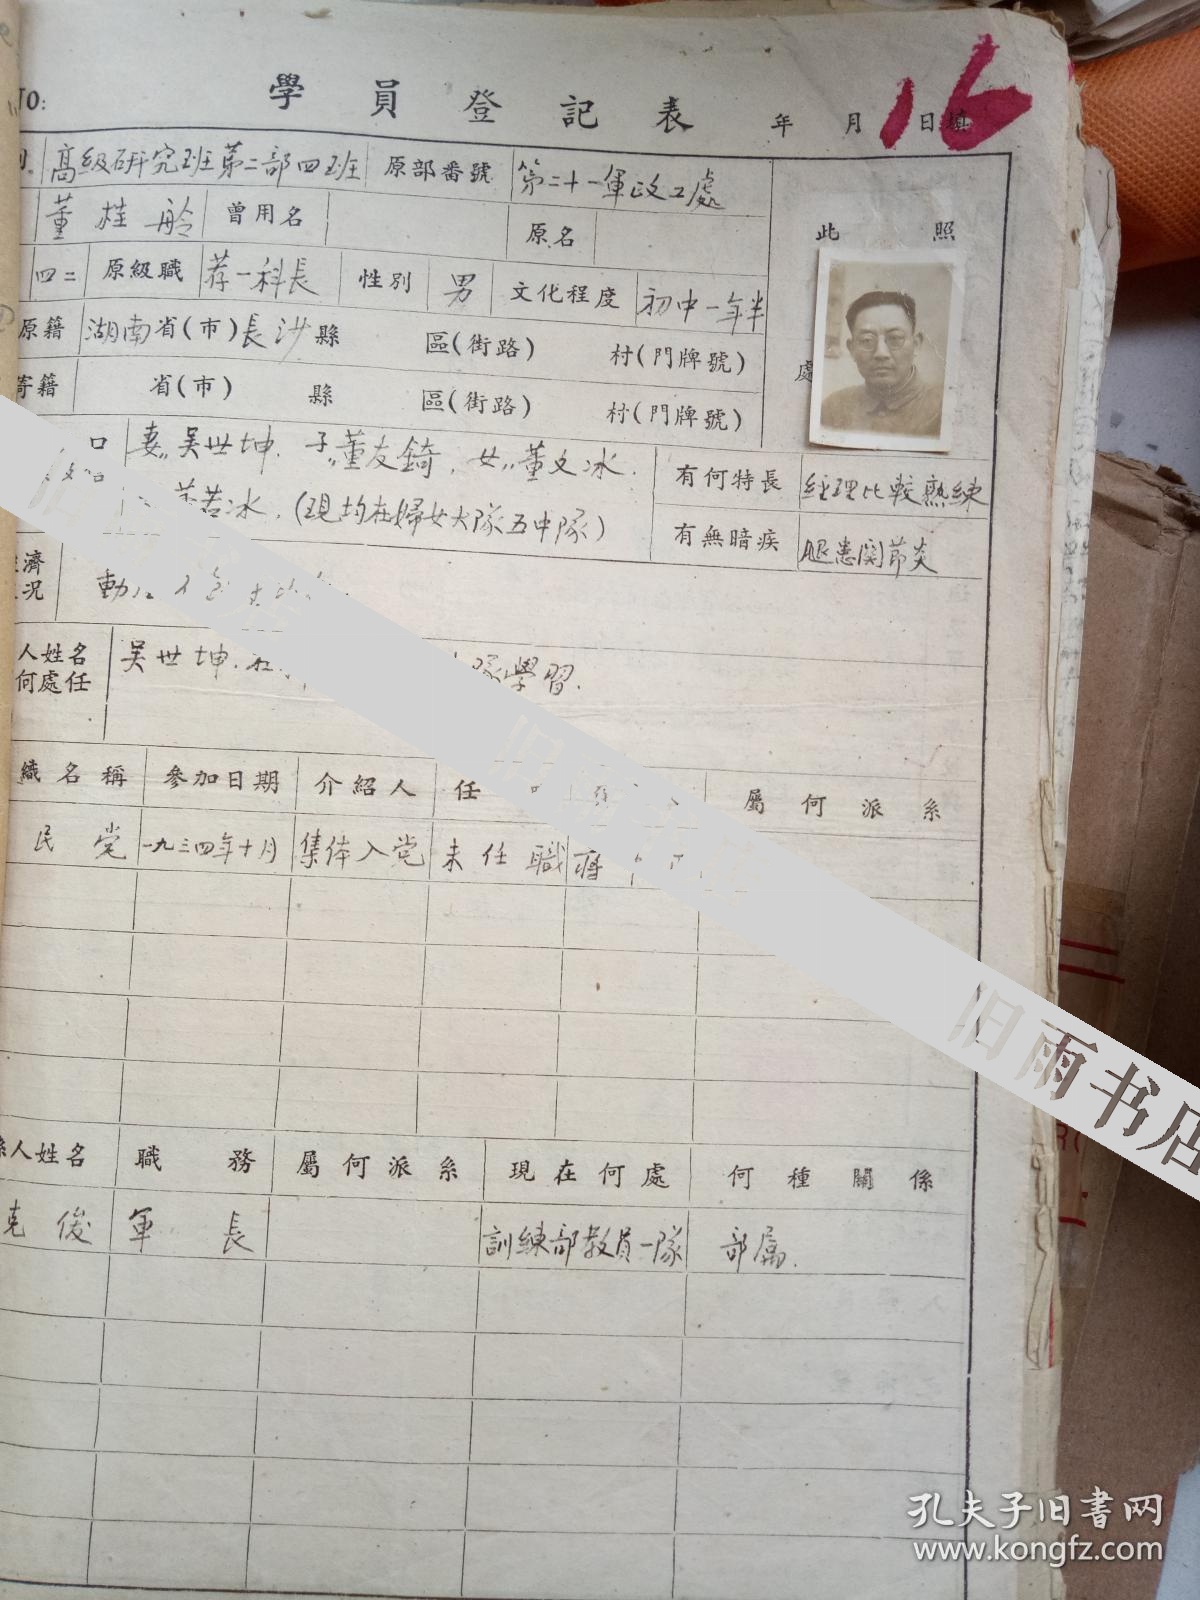 學員登記表
年 月 日填
16
TO:
高級研究班第二部四班 原部番號 第二十一軍政工處
董桂舲 曾用名 原名
四二 原級職 荐一科長 性別 男 文化程度 初中一年半
此 照
處
原籍 湖南省(市)長沙縣 區(街路) 村(門牌號)
寄籍 省(市) 縣 區(街路) 村(門牌號)
口 妻,,吴世坤. 子,,董友錡. 女,,董文冰.
若冰. (現均在婦女大隊五中隊)
有何特長 经理比較熟練
有無暗疾 腿患関节炎
濟
況 動
人姓名
何處任
吴世坤. 隊學習.
織名稱 參加日期 介紹人 任 屬何派系
民党 一九三四年十月 集体入党 未任職 蒋
係人姓名 職務 屬何派系 現在何處 何種關係
克俊 軍長 訓練部教員一隊 部属.
旧雨书店
孔夫子旧书网
www.kongfz.com